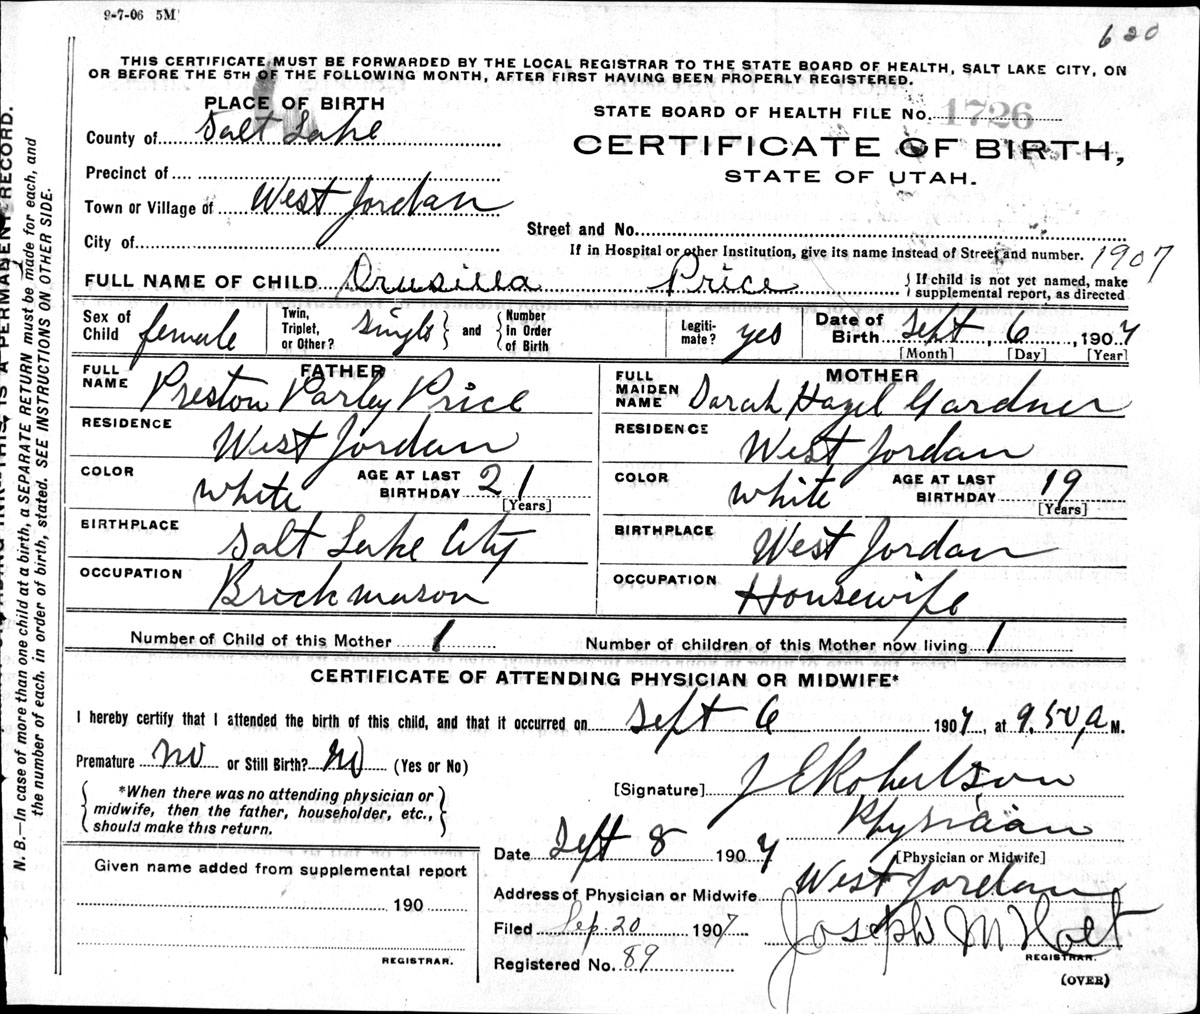 9-7-06 5M
620
THIS CERTIFICATE MUST BE FORWARDED BY THE LOCAL REGISTRAR TO THE STATE BOARD OF HEALTH, SALT LAKE CITY, ON
OR BEFORE THE 5TH OF THE FOLLOWING MONTH, AFTER FIRST HAVING BEEN PROPERLY REGISTERED.
PLACE OF BIRTH
County of Salt Lake
Precinct of
Town or Village of West Jordan
City of
STATE BOARD OF HEALTH FILE No. 1726
CERTIFICATE OF BIRTH,
STATE OF UTAH.
Street and No.
If in Hospital or other Institution, give its name instead of Street and number. 1907
FULL NAME OF CHILD Drusilla Price { If child is not yet named, make
supplemental report, as directed
Sex of Child female
Twin, Triplet, or Other? Single } and { Number in Order of Birth
Legiti-mate? yes
Date of Birth Sept, 6, 1907
[Month] [Day] [Year]
FATHER
FULL NAME Preston Parley Price
RESIDENCE West Jordan
COLOR white AGE AT LAST BIRTHDAY 21
[Years]
BIRTHPLACE Salt Lake City
OCCUPATION Brick mason
MOTHER
FULL MAIDEN NAME Sarah Hazel Gardner
RESIDENCE West Jordan
COLOR white AGE AT LAST BIRTHDAY 19
[Years]
BIRTHPLACE West Jordan
OCCUPATION Housewife
Number of Child of this Mother 1 Number of children of this Mother now living 1
CERTIFICATE OF ATTENDING PHYSICIAN OR MIDWIFE*
I hereby certify that I attended the birth of this child, and that it occurred on Sept 6 1907, at 9.50, a M.
Premature no or Still Birth? no (Yes or No)
{ *When there was no attending physician or
midwife, then the father, householder, etc.,
should make this return. }
[Signature] J E Robertson
Physician
[Physician or Midwife]
Date Sept 8 1907
Address of Physician or Midwife West Jordan
Filed Sep. 20 1907 Joseph M Holt
REGISTRAR.
Registered No. 89
(OVER)
Given name added from supplemental report
190
REGISTRAR.
N. B.—In case of more than one child at a birth, a SEPARATE RETURN must be made for each, and
the number of each, in order of birth, stated. SEE INSTRUCTIONS ON OTHER SIDE.
THIS IS A PERMANENT RECORD.